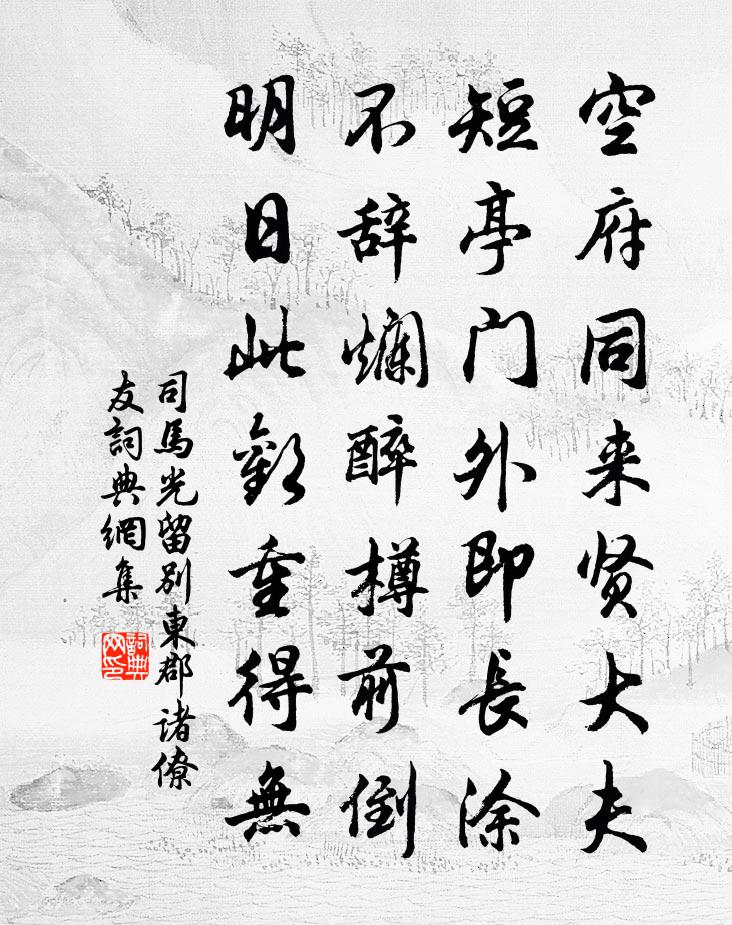 空府同来贤大夫
短亭门外即長涂
不辞爛醉樽前倒
明日此歡重得無
司馬光留别東郡诸僚
友詞典網集
詞典
网印